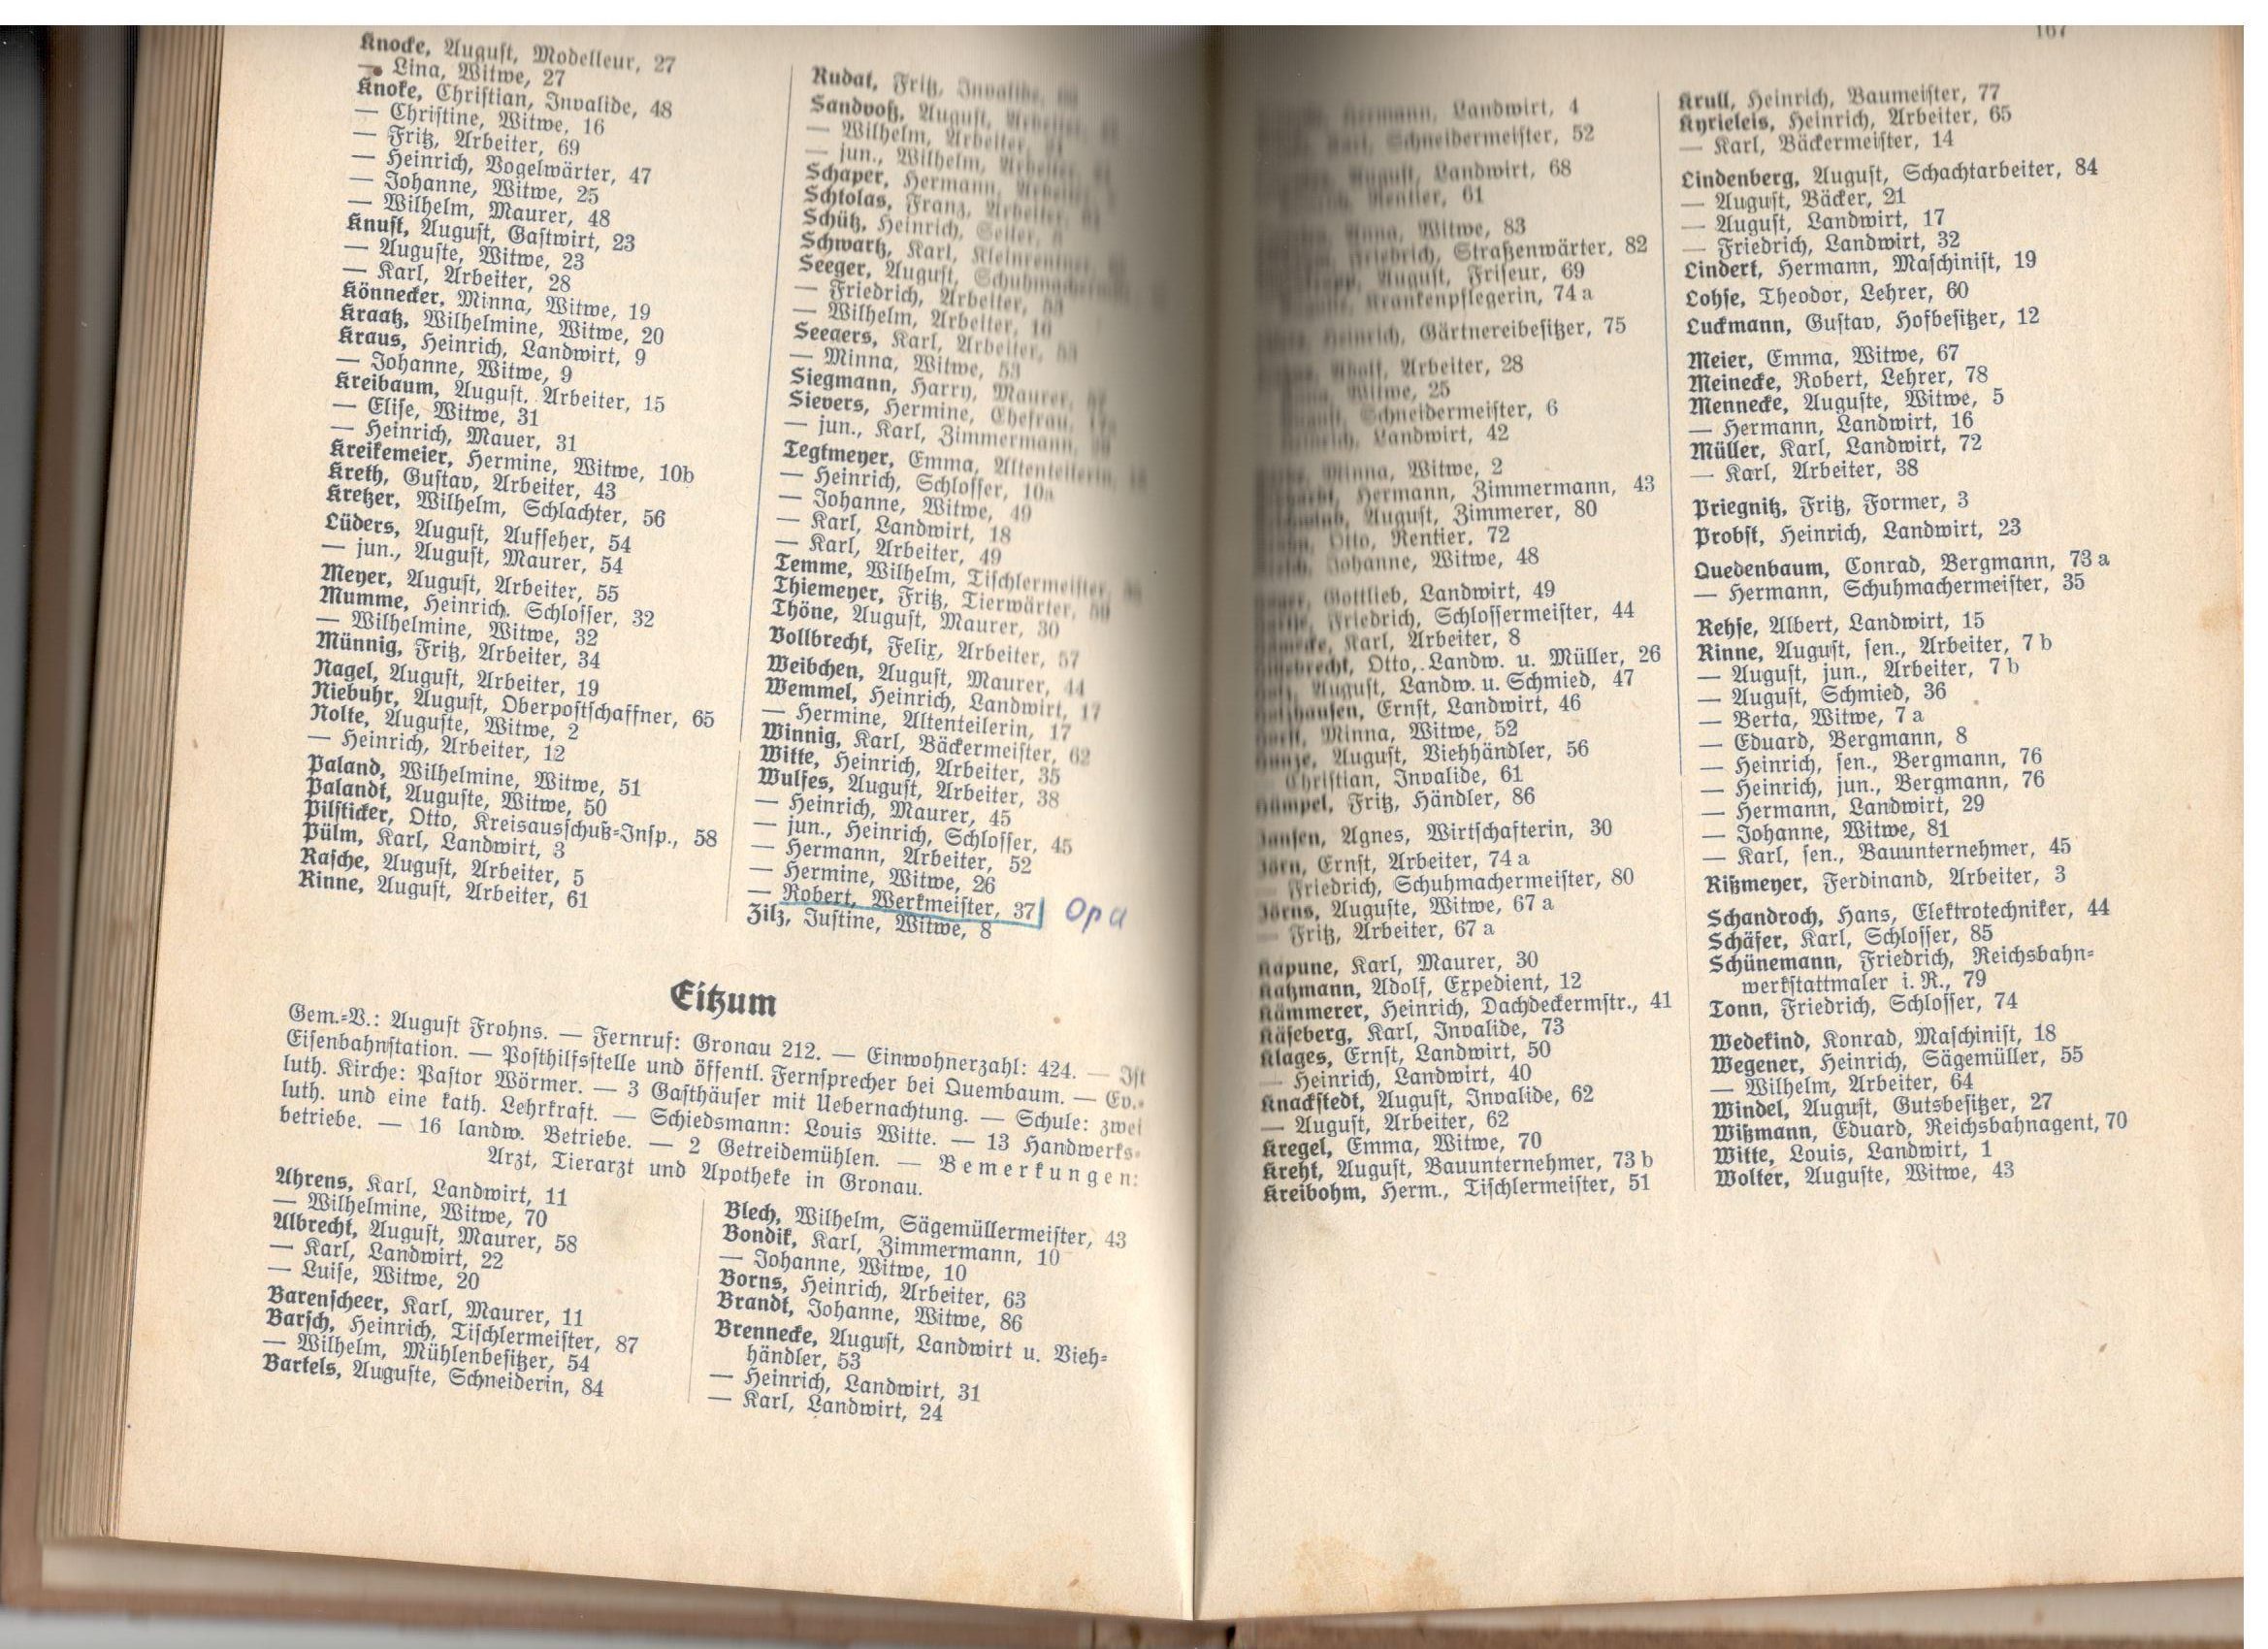 Knocke, August, Modelleur, 27
— Lina, Witwe, 27
Knoke, Christian, Invalide, 48
— Christine, Witwe, 16
— Fritz, Arbeiter, 69
— Heinrich, Vogelwärter, 47
— Johanne, Witwe, 25
— Wilhelm, Maurer, 48
Knust, August, Gastwirt, 23
— Auguste, Witwe, 23
— Karl, Arbeiter, 28
Könnecker, Minna, Witwe, 19
Kraatz, Wilhelmine, Witwe, 20
Kraus, Heinrich, Landwirt, 9
— Johanne, Witwe, 9
Kreibaum, August, Arbeiter, 15
— Elise, Witwe, 31
— Heinrich, Mauer, 31
Kreikemeier, Hermine, Witwe, 10b
Kreth, Gustav, Arbeiter, 43
Kretzer, Wilhelm, Schlachter, 56
Lüders, August, Aufseher, 54
— jun., August, Maurer, 54
Meyer, August, Arbeiter, 55
Mumme, Heinrich, Schlosser, 32
— Wilhelmine, Witwe, 32
Münnig, Fritz, Arbeiter, 34
Nagel, August, Arbeiter, 19
Niebuhr, August, Oberpostschaffner, 65
Nolte, Auguste, Witwe, 2
— Heinrich, Arbeiter, 12
Paland, Wilhelmine, Witwe, 51
Palandt, Auguste, Witwe, 50
Pilsticker, Otto, Kreisausschuß-Insp., 58
Pülm, Karl, Landwirt, 3
Rasche, August, Arbeiter, 5
Rinne, August, Arbeiter, 61
Rudat, Fritz, Invalide,
Sandvoß, August, Arbeiter,
— Wilhelm, Arbeiter,
— jun., Wilhelm, Arbeiter,
Schaper, Hermann, Arbeiter,
Schtolas, Franz, Arbeiter,
Schütz, Heinrich,
Schwartz, Karl, Kleinrentner,
Seeger, August, Schuhmacher
— Friedrich, Arbeiter,
— Wilhelm, Arbeiter,
Seegers, Karl, Arbeiter,
— Minna, Witwe, 53
Siegmann, Harry, Maurer,
Sievers, Hermine, Ehefrau,
— jun., Karl, Zimmermann,
Tegtmeyer, Emma, Altenteilerin,
— Heinrich, Schlosser, 10a
— Johanne, Witwe, 49
— Karl, Landwirt, 18
— Karl, Arbeiter, 49
Temme, Wilhelm, Tischlermeister,
Thiemeyer, Fritz, Tierwärter,
Thöne, August, Maurer, 30
Vollbrecht, Felix, Arbeiter, 57
Weibchen, August, Maurer, 44
Wemmel, Heinrich, Landwirt, 17
— Hermine, Altenteilerin, 17
Winnig, Karl, Bäckermeister, 62
Witte, Heinrich, Arbeiter, 35
Wulfes, August, Arbeiter, 38
— Heinrich, Maurer, 45
— jun., Heinrich, Schlosser, 45
— Hermann, Arbeiter, 52
— Hermine, Witwe, 26
— Robert, Werkmeister, 37 Opa
Zilz, Justine, Witwe, 8
Eitzum
Gem.-V.: August Frohns. — Fernruf: Gronau 212. — Einwohnerzahl: 424. — Ist
Eisenbahnstation. — Posthilfsstelle und öffentl. Fernsprecher bei Quembaum. — Ev.-
luth. Kirche: Pastor Wörmer. — 3 Gasthäuser mit Uebernachtung. — Schule: zwei
luth. und eine kath. Lehrkraft. — Schiedsmann: Louis Witte. — 13 Handwerks-
betriebe. — 16 landw. Betriebe. — 2 Getreidemühlen. — Bemerkungen:
Arzt, Tierarzt und Apotheke in Gronau.
Ahrens, Karl, Landwirt, 11
— Wilhelmine, Witwe, 70
Albrecht, August, Maurer, 58
— Karl, Landwirt, 22
— Luise, Witwe, 20
Barenscheer, Karl, Maurer, 11
Barsch, Heinrich, Tischlermeister, 87
— Wilhelm, Mühlenbesitzer, 54
Bartels, Auguste, Schneiderin, 84
Blech, Wilhelm, Sägemüllermeister, 43
Bondik, Karl, Zimmermann, 10
— Johanne, Witwe, 10
Borns, Heinrich, Arbeiter, 63
Brandt, Johanne, Witwe, 86
Brennecke, August, Landwirt u. Vieh-
händler, 53
— Heinrich, Landwirt, 31
— Karl, Landwirt, 24
167
Hermann, Landwirt, 4
Karl, Schneidermeister, 52
August, Landwirt, 68
Rentier, 61
Anna, Witwe, 83
Friedrich, Straßenwärter, 82
August, Friseur, 69
Krankenpflegerin, 74 a
Heinrich, Gärtnereibesitzer, 75
Adolf, Arbeiter, 28
Witwe, 25
August, Schneidermeister, 6
Landwirt, 42
Minna, Witwe, 2
Hermann, Zimmermann, 43
August, Zimmerer, 80
Otto, Rentier, 72
Johanne, Witwe, 48
Gottlieb, Landwirt, 49
Friedrich, Schlossermeister, 44
Karl, Arbeiter, 8
Otto, Landw. u. Müller, 26
August, Landw. u. Schmied, 47
Ernst, Landwirt, 46
Minna, Witwe, 52
August, Viehhändler, 56
— Christian, Invalide, 61
Hümpel, Fritz, Händler, 86
Jansen, Agnes, Wirtschafterin, 30
Jörn, Ernst, Arbeiter, 74 a
— Friedrich, Schuhmachermeister, 80
Jörns, Auguste, Witwe, 67 a
— Fritz, Arbeiter, 67 a
Kapune, Karl, Maurer, 30
Katzmann, Adolf, Expedient, 12
Kämmerer, Heinrich, Dachdeckermstr., 41
Käseberg, Karl, Invalide, 73
Klages, Ernst, Landwirt, 50
— Heinrich, Landwirt, 40
Knackstedt, August, Invalide, 62
— August, Arbeiter, 62
Kregel, Emma, Witwe, 70
Kreht, August, Bauunternehmer, 73 b
Kreibohm, Herm., Tischlermeister, 51
Krull, Heinrich, Baumeister, 77
Kyrieleis, Heinrich, Arbeiter, 65
— Karl, Bäckermeister, 14
Lindenberg, August, Schachtarbeiter, 84
— August, Bäcker, 21
— August, Landwirt, 17
— Friedrich, Landwirt, 32
Lindert, Hermann, Maschinist, 19
Lohse, Theodor, Lehrer, 60
Luckmann, Gustav, Hofbesitzer, 12
Meier, Emma, Witwe, 67
Meinecke, Robert, Lehrer, 78
Mennecke, Auguste, Witwe, 5
— Hermann, Landwirt, 16
Müller, Karl, Landwirt, 72
— Karl, Arbeiter, 38
Priegnitz, Fritz, Former, 3
Probst, Heinrich, Landwirt, 23
Quedenbaum, Conrad, Bergmann, 73 a
— Hermann, Schuhmachermeister, 35
Rehse, Albert, Landwirt, 15
Rinne, August, sen., Arbeiter, 7 b
— August, jun., Arbeiter, 7 b
— August, Schmied, 36
— Berta, Witwe, 7 a
— Eduard, Bergmann, 8
— Heinrich, sen., Bergmann, 76
— Heinrich, jun., Bergmann, 76
— Hermann, Landwirt, 29
— Johanne, Witwe, 81
— Karl, sen., Bauunternehmer, 45
Rißmeyer, Ferdinand, Arbeiter, 3
Schandroch, Hans, Elektrotechniker, 44
Schäfer, Karl, Schlosser, 85
Schünemann, Friedrich, Reichsbahn-
werkstattmaler i. R., 79
Tonn, Friedrich, Schlosser, 74
Wedekind, Konrad, Maschinist, 18
Wegener, Heinrich, Sägemüller, 55
— Wilhelm, Arbeiter, 64
Windel, August, Gutsbesitzer, 27
Wißmann, Eduard, Reichsbahnagent, 70
Witte, Louis, Landwirt, 1
Wolter, Auguste, Witwe, 43